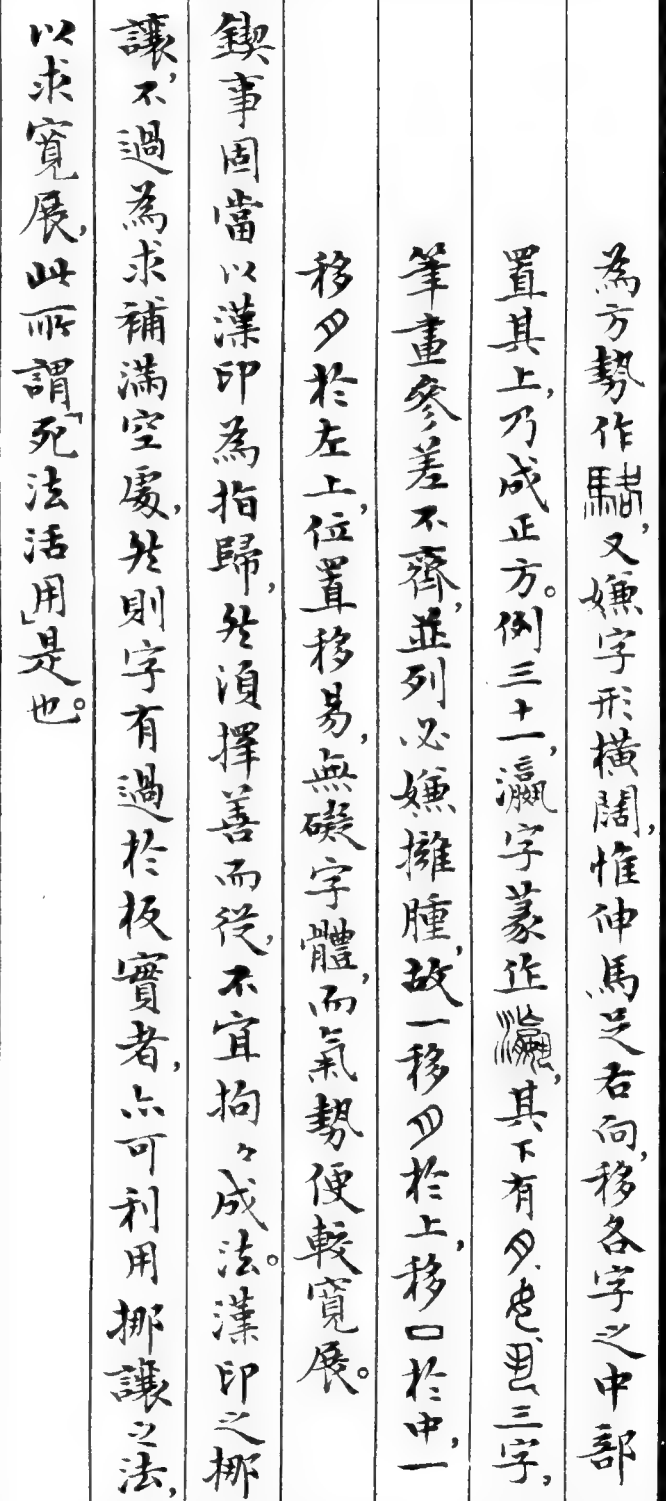 為方勢作,又嫌字形橫闊,惟伸馬足右向,移各字之中部
置其上,乃成正方。例三十一,瀛字篆作,其下有三字,
筆畫參差不齊,並列必嫌擁腫,故一移月於上,移口於中,一
移月於左上,位置移易,無礙字體,而氣勢便較寬展。
鍥事固當以漢印為指歸,然須擇善而從,不宜拘々成法。漢印之挪
讓,不過為求補滿空處,然則字有過於板實者,亦可利用挪讓之法,
以求寬展,此所謂「死法活用」是也。